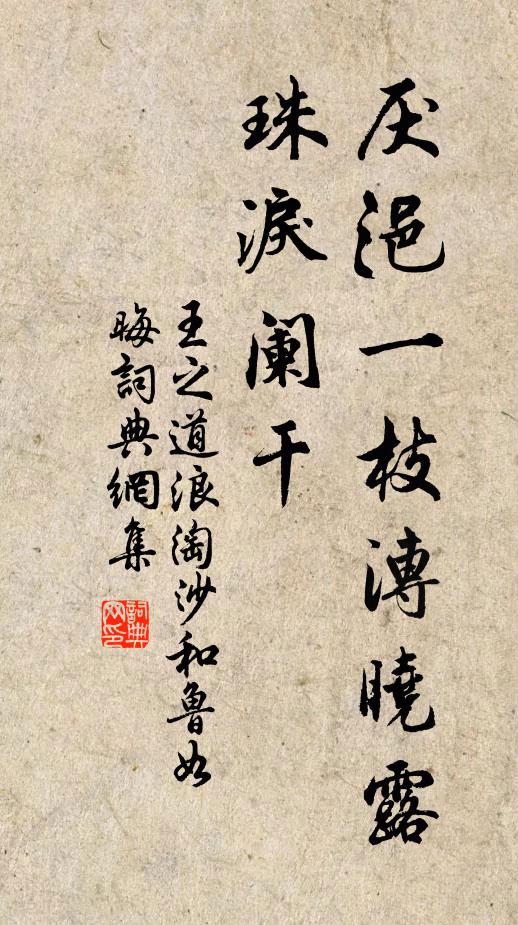 厌浥一枝溥曉露
珠淚阑干
王之道浪淘沙和鲁如
晦詞典網集
詞典
网印